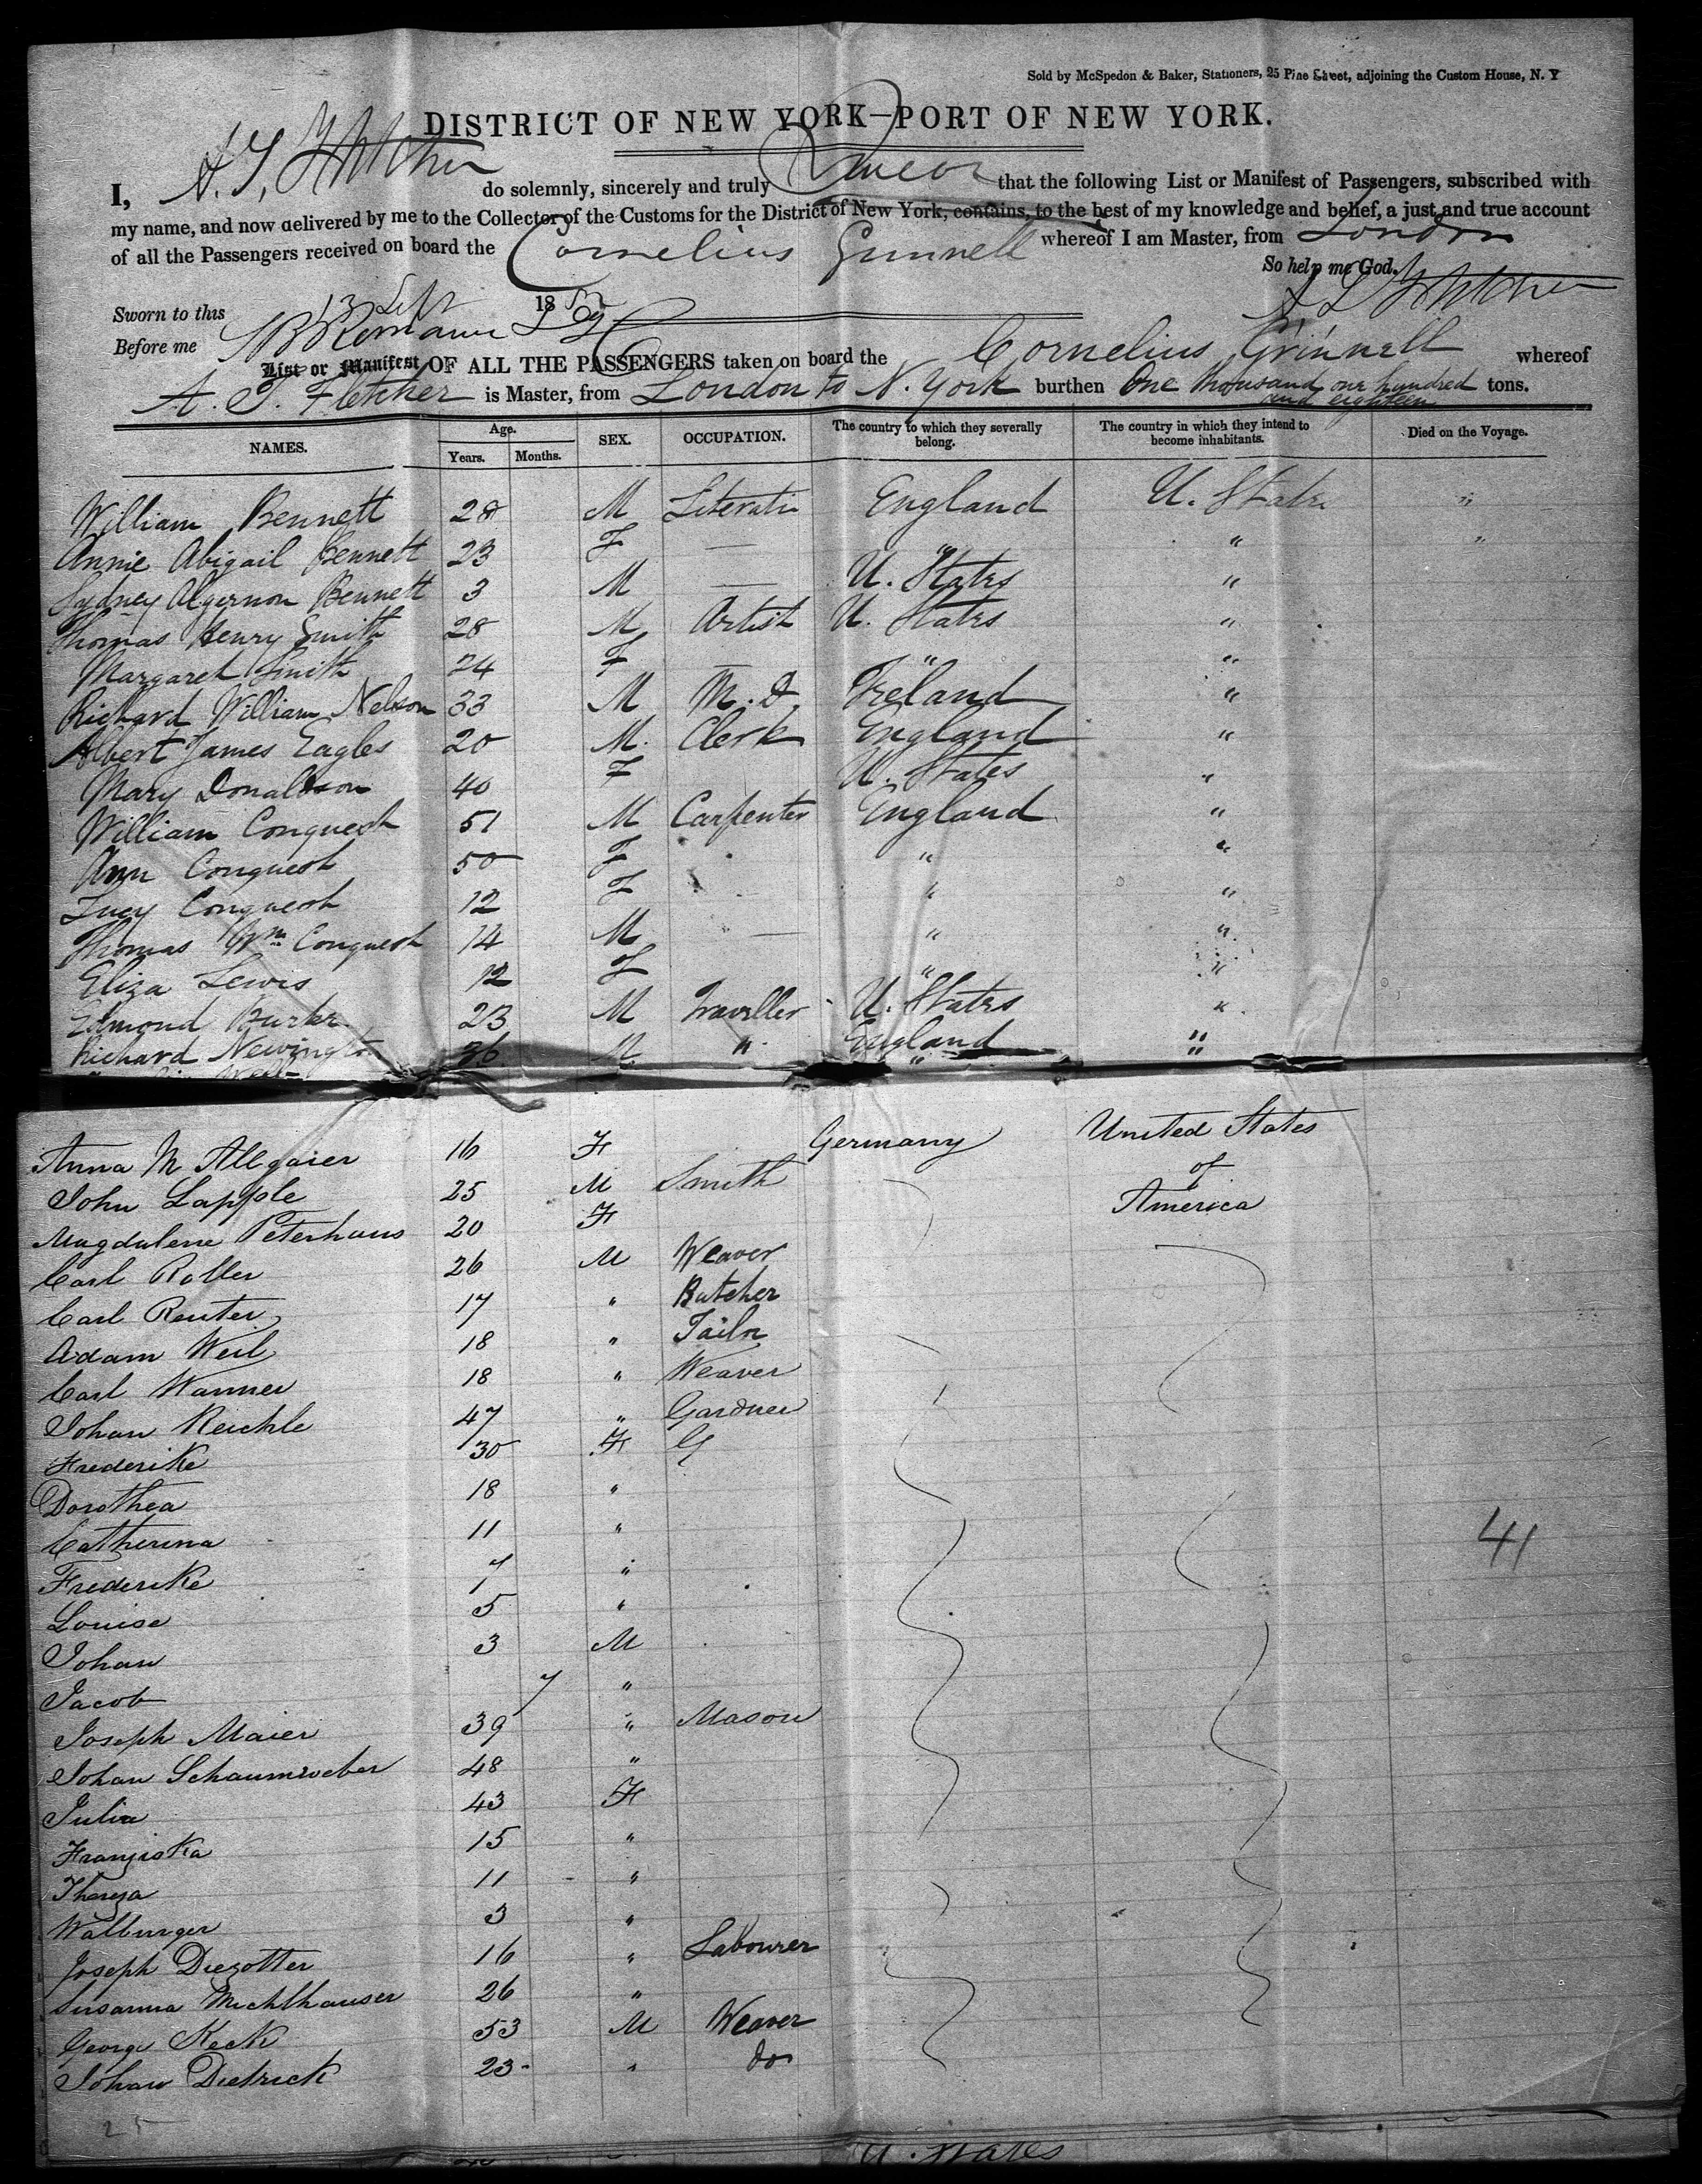 Sold by McSpedon & Baker, Stationers, 25 Pine Street, adjoining the Custom House, N. Y
DISTRICT OF NEW YORK—PORT OF NEW YORK.
I, A. T. Fletcher do solemnly, sincerely and truly Swear that the following List or Manifest of Passengers, subscribed with
my name, and now delivered by me to the Collector of the Customs for the District of New York, contains, to the best of my knowledge and belief, a just and true account
of all the Passengers received on board the Cornelius Grinnell whereof I am Master, from London
So help me God.
Sworn to this 13 Sept 185
A T Fletcher
Before me
List or Manifest OF ALL THE PASSENGERS taken on board the Cornelius Grinnell whereof
A. T. Fletcher is Master, from London to N. York burthen One thousand one hundred and eighteen tons.
NAMES. Age. Years. Months. SEX. OCCUPATION. The country to which they severally belong. The country in which they intend to become inhabitants. Died on the Voyage.
William Bennett 28 M England U. States "
Annie Abigail Bennett 23 F — " " "
Sydney Algernon Bennett 3 M — U. States "
Thomas Henry Smith 28 M Artist U. States "
Margaret Smith 24 F — " "
Richard William Nelson 33 M M. D. Ireland "
Albert James Eagles 20 M. Clerk England "
Mary Donaldson 40 F U. States "
William Conquest 51 M Carpenter England "
Ann Conquest 50 F " "
Lucy Conquest 12 F " "
Thomas Wm Conquest 14 M — " "
Eliza Lewis 12 F " "
Edmond Burke 23 M Traveller U. States "
Richard Newington 36 M " England "
Anna M Allgaier 16 F Germany United States
of
John Lapple 25 M Smith America
Magdalene Peterhans 20 F
Carl Roller 26 M Weaver
Carl Reuter 17 " Butcher
Adam Weil 18 " Tailor
Carl Wanner 18 " Weaver
Johan Reichle 47 " Gardner
Frederike 30 F G
Dorothea 18 "
Catherina 11 "
Frederike 7 "
41
Louise 5 "
Johan 3 M
Jacob 7 "
Joseph Maier 39 " Mason
Johan Schaumweber 48 "
Julia 43 F
Franziska 15 "
Thereza 11 "
Walburger 3 "
Joseph Diezotter 16 " Labourer
Susanna Michlhauser 26 "
George Keck 53 M Weaver
Johan Dietrick 23 " do
25
U. States